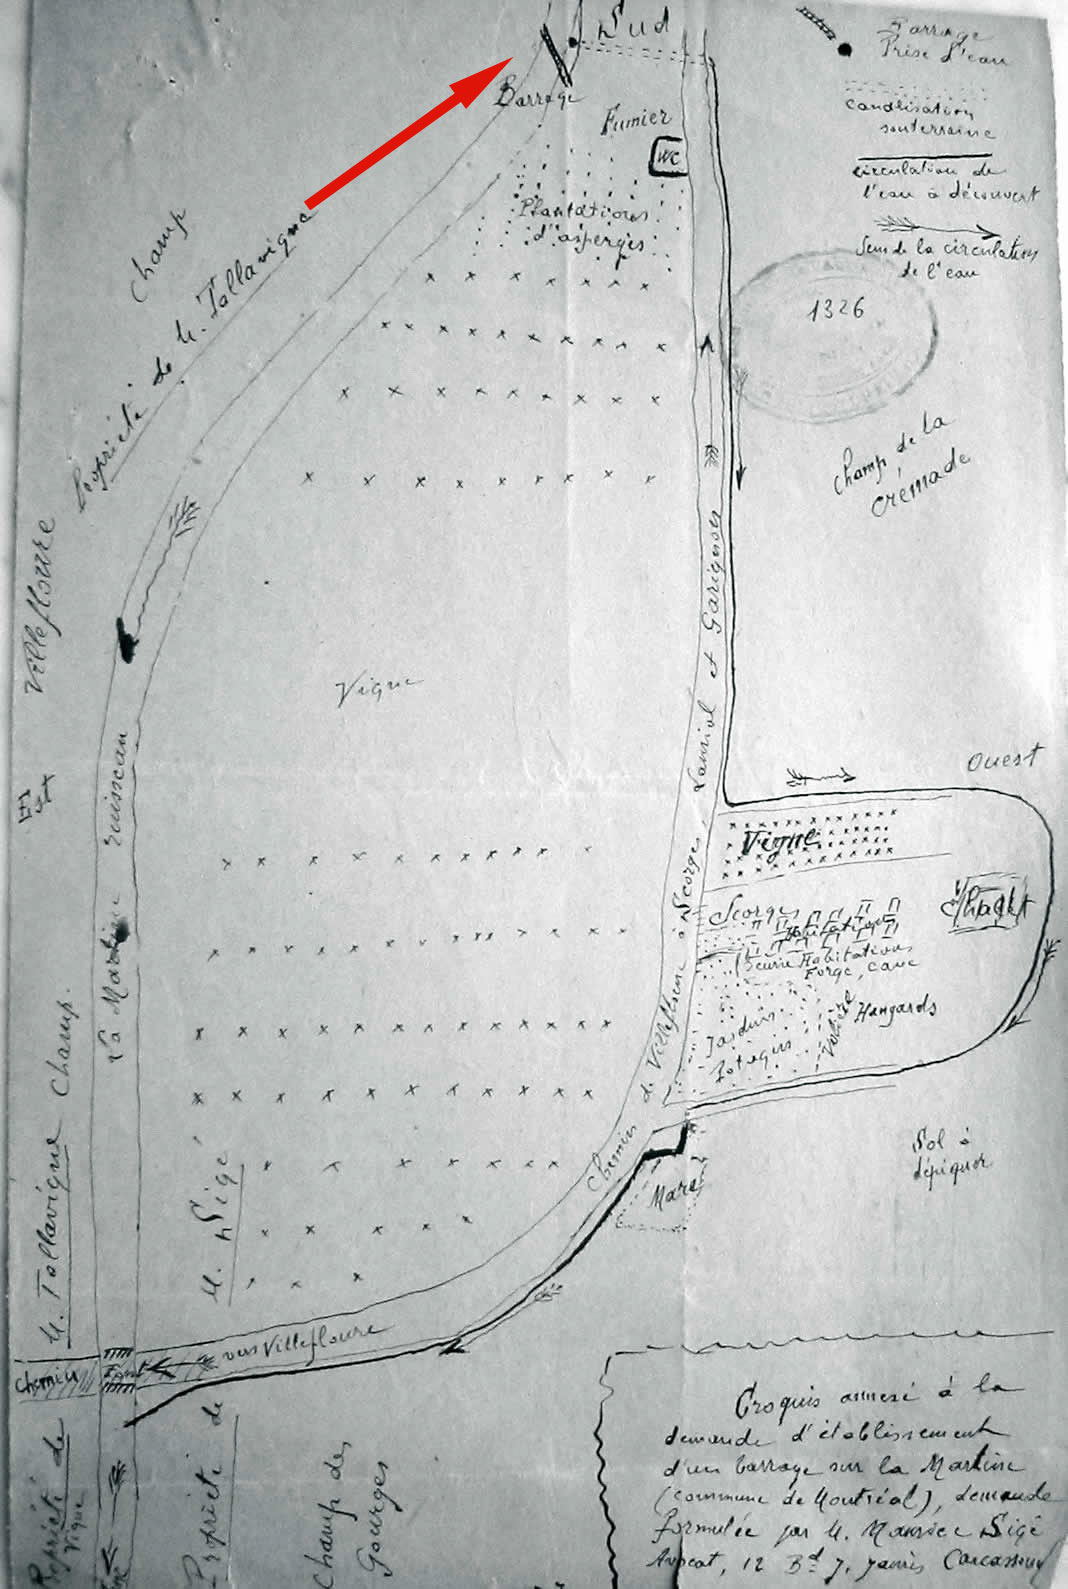 Sud
Barrage
Prise d'eau
canalisation
souterraine
circulation de
l'eau à découvert
Sens de la circulation
de l'eau
1326
Barrage
Fumier
WC
Plantations
d'asperges
Champ
Propriété de M. Tallavigne
Champ de la
Crémade
Villefloure
Est
Vigne
La Martine ruisseau
Chemin de Villefloure à Scorges, Lauriol et Garignon
Ouest
Vigne
Scorges
Habitation
Écurie Habitations
Forge, cave
Hangards
Jardins
Potagers
Sol à
dépiquer
Mare
M. Tallavigne Champ.
M. Sigé
vers Villefloure
Chemin
Pont
Propriété de
Vigne
Propriété de
Champ des
Gourges
Croquis annexé à la
demande d'établissement
d'un barrage sur la Martine
(commune de Montréal), demande
formulée par M. Maurice Sigé
Avocat, 12 Bd J. Jaurès Carcassonne